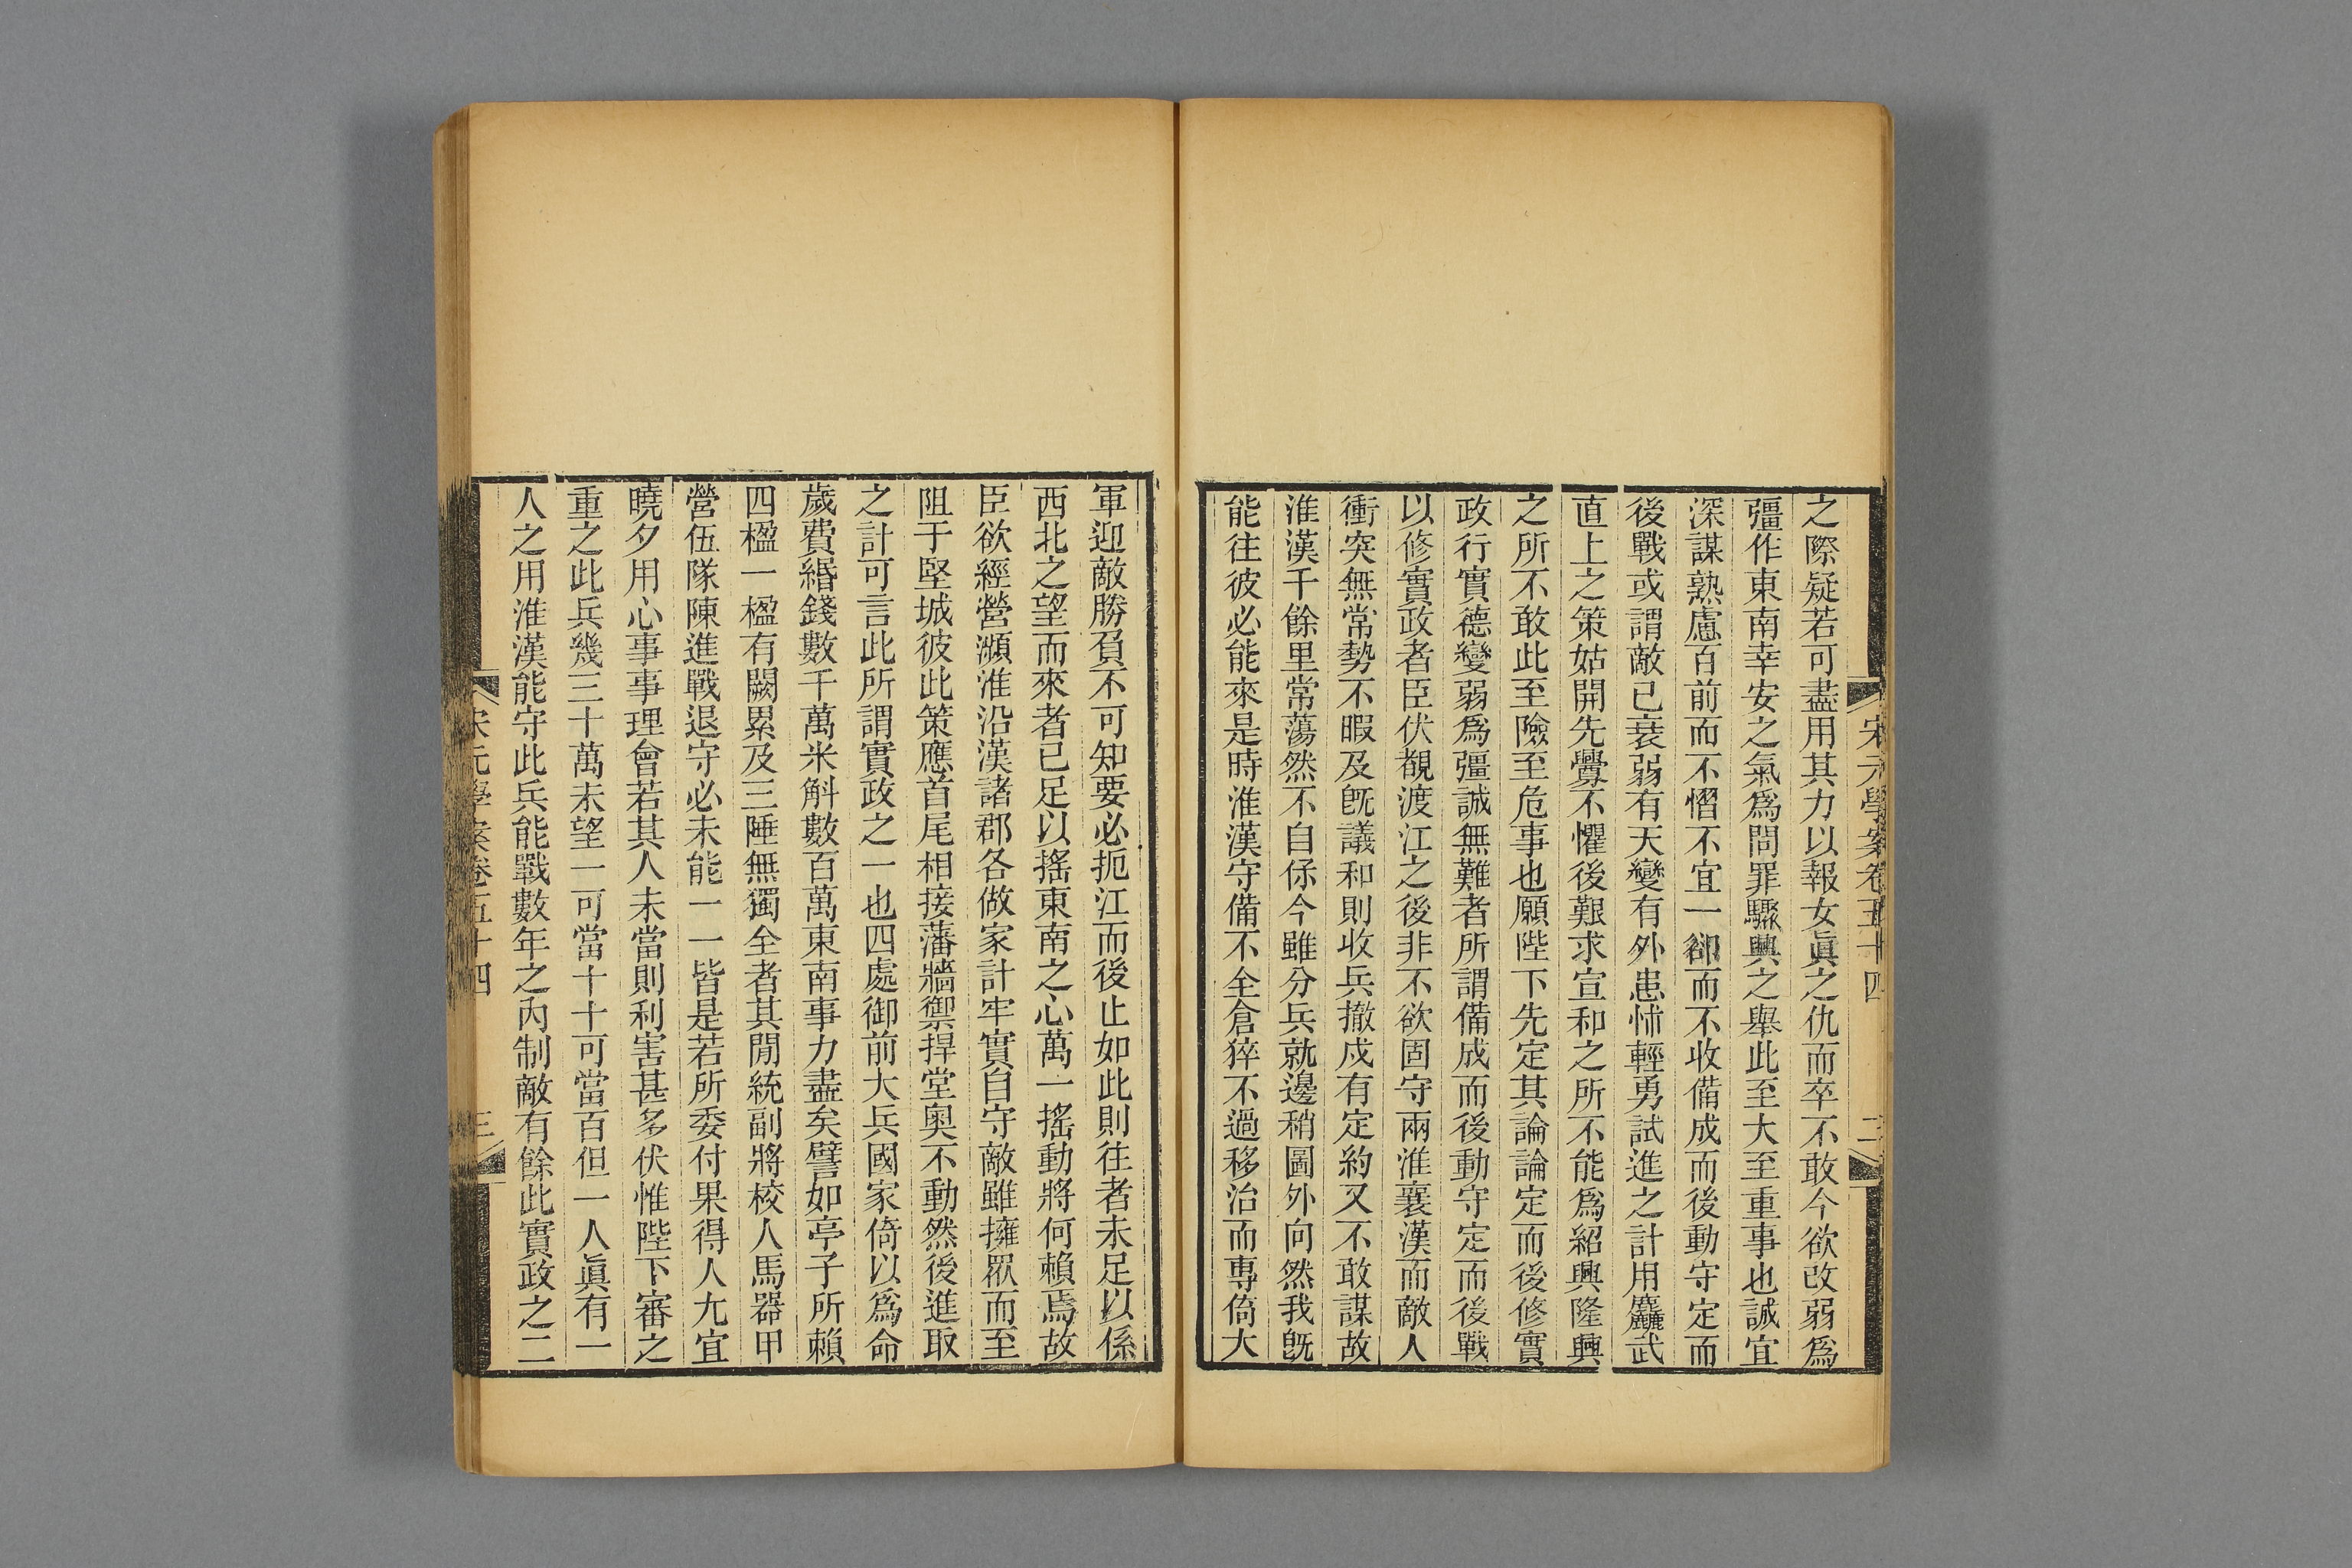 宋元學案卷五十四
二
之際疑若可盡用其力以報女眞之仇而卒不敢今欲改弱爲
彊作東南幸安之氣爲問罪驟興之舉此至大至重事也誠宜
深謀熟慮百前而不慴不宜一卻而不收備成而後動守定而
後戰或謂敵已衰弱有天變有外患怵輕勇試進之計用麤武
直上之策姑開先釁不懼後艱求宣和之所不能爲紹興隆興
之所不敢此至險至危事也願陛下先定其論論定而後修實
政行實德變弱爲彊誠無難者所謂備成而後動守定而後戰
以修實政者臣伏覩渡江之後非不欲固守兩淮襄漢而敵人
衝突無常勢不暇及旣議和則收兵撤戍有定約又不敢謀故
淮漢千餘里常蕩然不自保今雖分兵就邊稍圖外向然我旣
能往彼必能來是時淮漢守備不全倉猝不過移治而專倚大
軍迎敵勝負不可知要必扼江而後止如此則往者未足以係
西北之望而來者已足以搖東南之心萬一搖動將何賴焉故
臣欲經營瀕淮沿漢諸郡各做家計牢實自守敵雖擁眾而至
阻于堅城彼此策應首尾相接藩牆禦捍堂奧不動然後進取
之計可言此所謂實政之一也四處御前大兵國家倚以爲命
歲費緡錢數千萬米斛數百萬東南事力盡矣譬如亭子所賴
四楹一楹有闕累及三陲無獨全者其閒統副將校人馬器甲
營伍隊陳進戰退守必未能一一皆是若所委付果得人尢宜
曉夕用心事事理會若其人未當則利害甚多伏惟陛下審之
重之此兵幾三十萬未望一可當十十可當百但一人眞有一
人之用淮漢能守此兵能戰數年之內制敵有餘此實政之二
宋元學案卷五十四
三